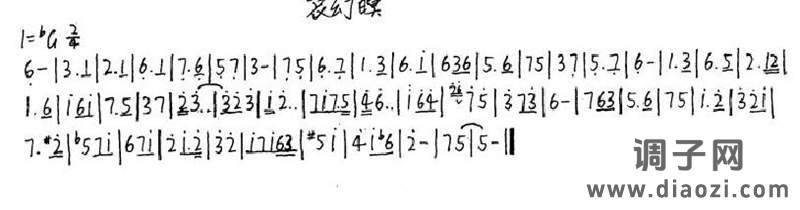 夜幻暝
1=ᵇG 2/4
6-|3.1|2.1|6.1|7.6|57|3-|75|6.7|1.3|6.i|636|5.6|75|37|5.7|6-|1.3|6.5|2.12|
1.6|i6i|7.5|37|23..|323|12..|7i75|46..|i64|75|373|6-|763|5.6|75|i.2|32i|
7.#2|b57i|67i|2i.2|32|i7i63|#5i|4ib6|2-|75|5-||
调子网
www.diaozi.com